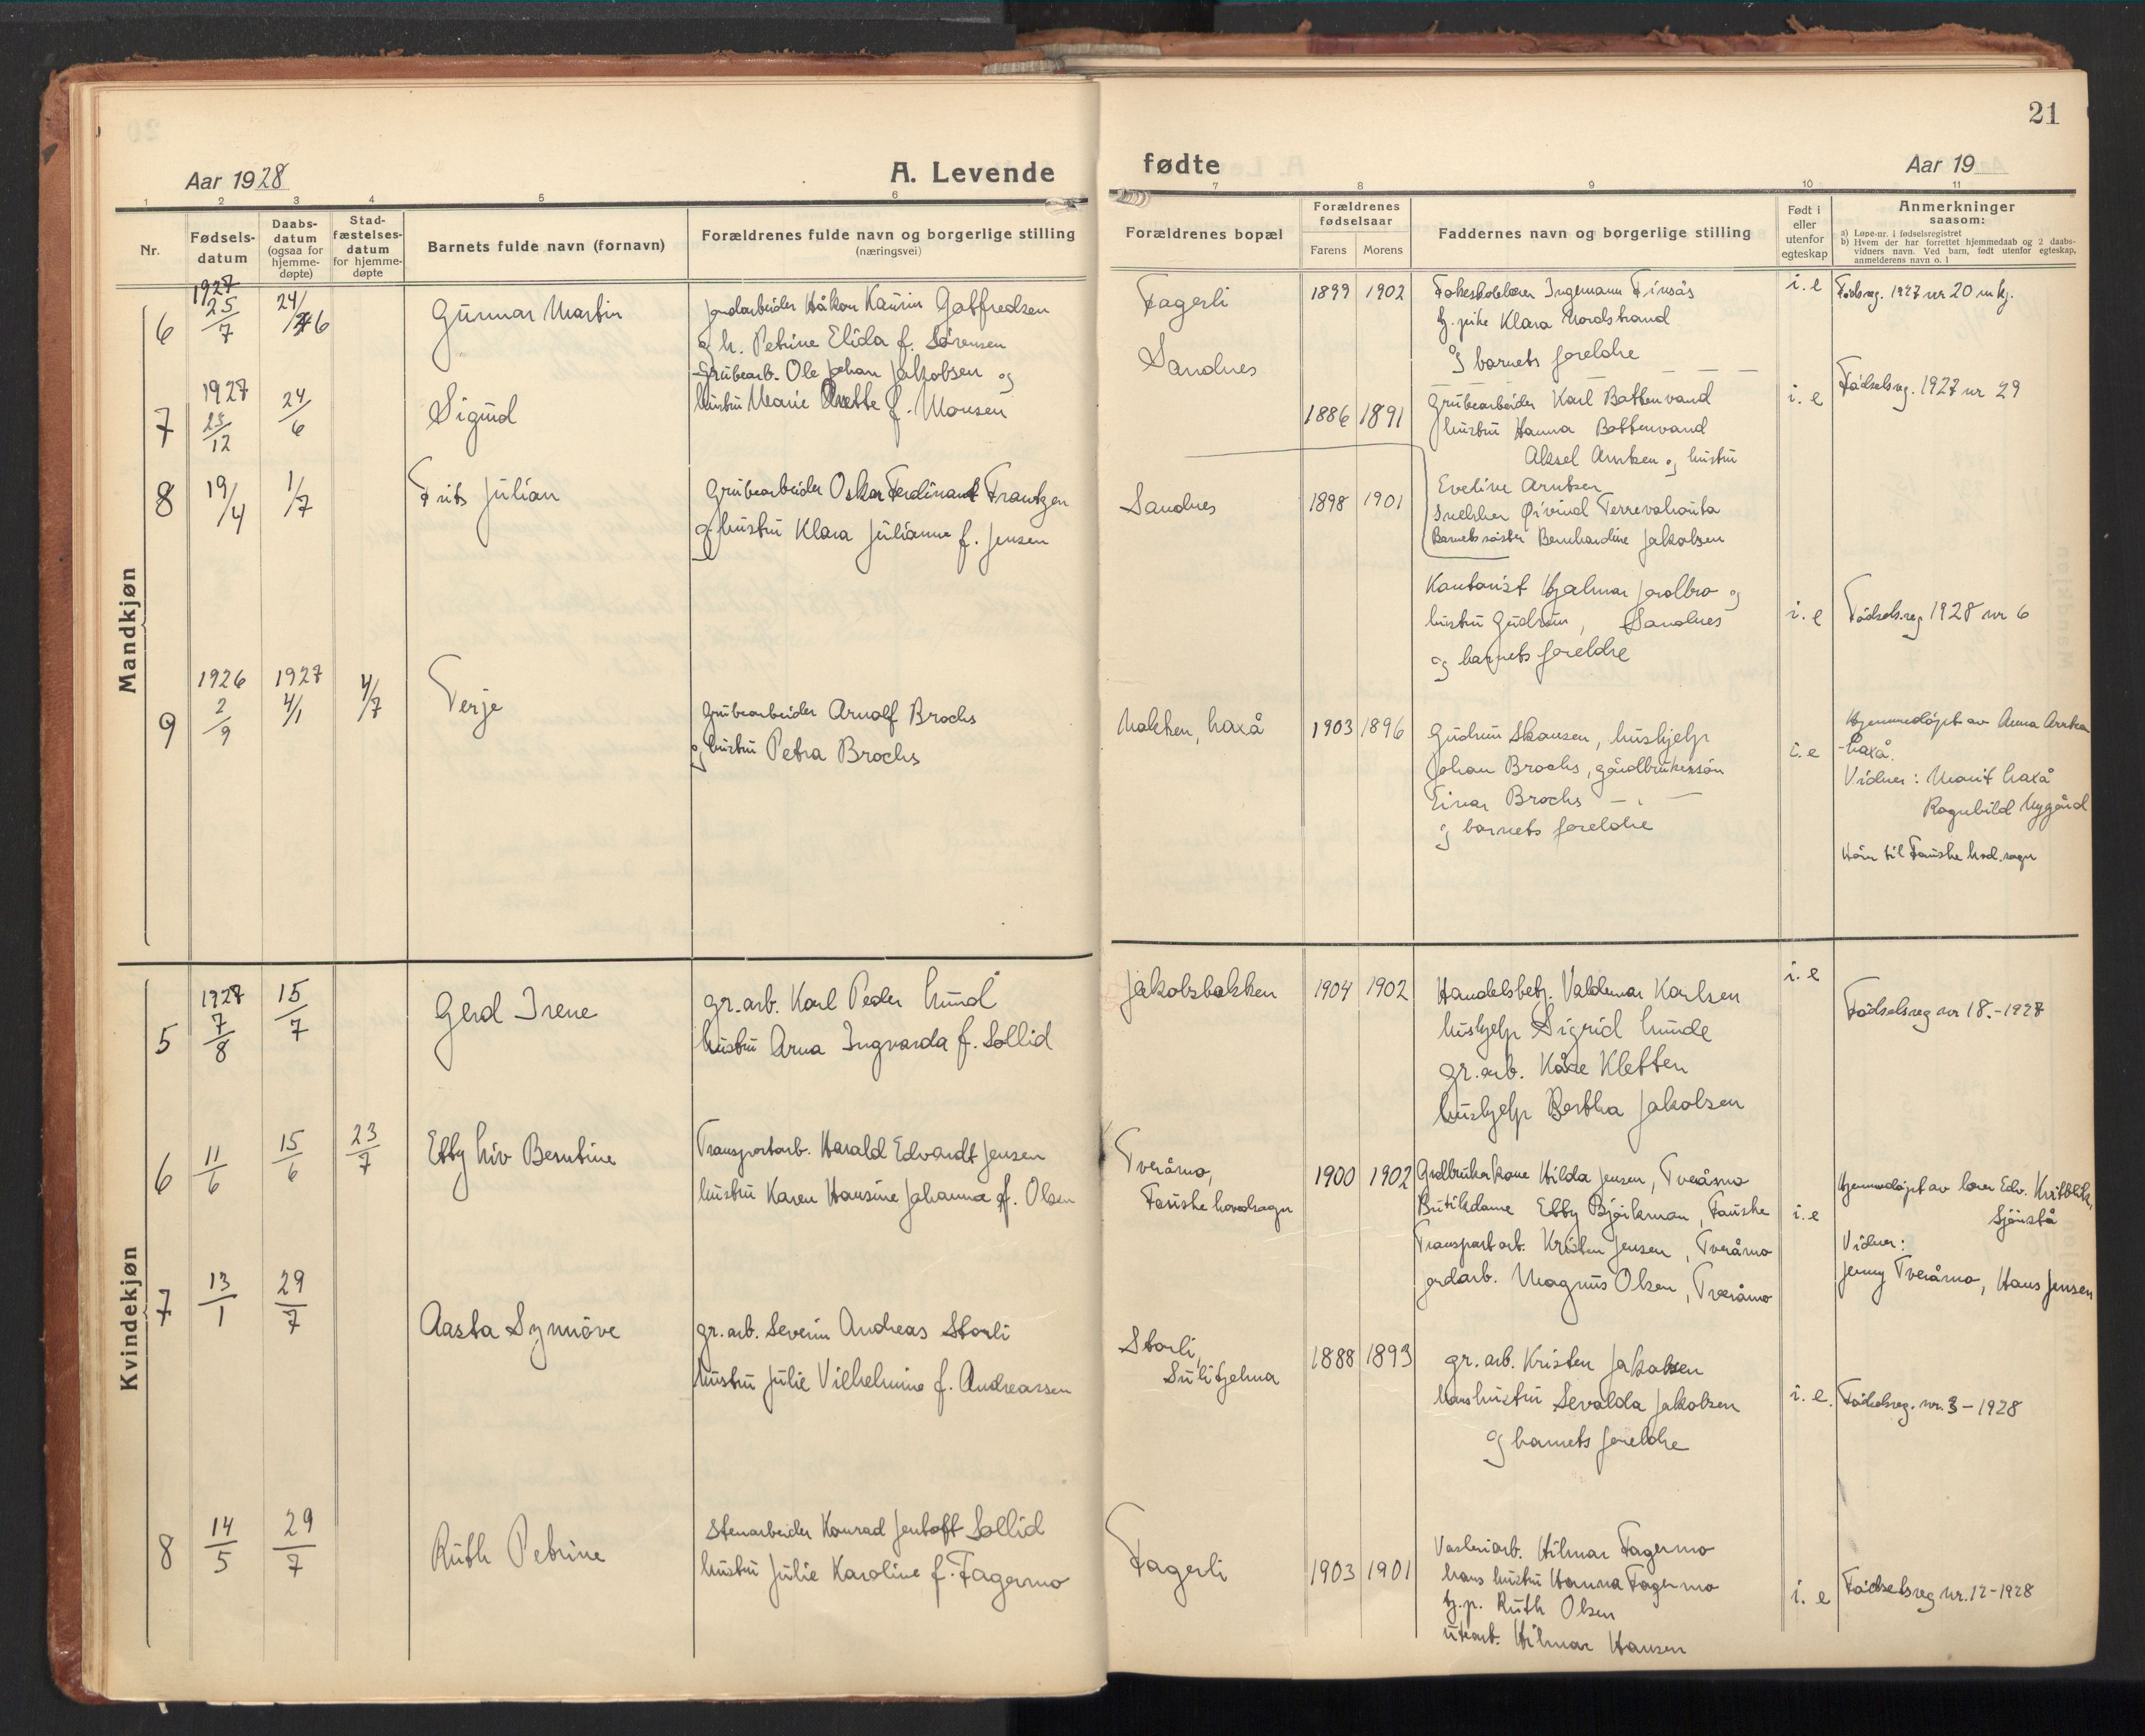 21
Aar 1928
A. Levende
fødte
Aar 19
1 2 3 4 5 6 7 8 9 10 11
Nr.
Fødsels-
datum
Daabs-
datum
(ogsaa for
hjemme-
døpte)
Stad-
fæstelses-
datum
for hjemme-
døpte
Barnets fulde navn (fornavn)
Forældrenes fulde navn og borgerlige stilling
(næringsvei)
Forældrenes bopæl
Forældrenes
fødselsaar
Farens Morens
Faddernes navn og borgerlige stilling
Født i
eller
utenfor
egteskap
Anmerkninger
saasom:
a) Løpe-nr. i fødselsregistret
b) Hvem der har forrettet hjemmedaab og 2 daabs-
vidners navn. Ved barn, født utenfor egteskap,
anmelderens navn o. l
Mandkjøn
6
1927
25/7
24/6
Gunnar Martin
jordarbeider Håkon Kaurin Gotfredsen
og h. Petrine Elida f. Sørensen
Fagerli
1899 1902
Folkeskolelærer Ingemann Finsås
tj. pike Klara Nordstrand
og barnets foreldre
i. e
Fødsreg. 1927 nr 20 m kj.
7
1927
23/12
24/6
Sigurd
Grubearb. Ole Johan Jakobsen og
hustru Marie Anette f. Monsen
Sandnes
1886 1891
Grubearbeider Karl Bottenvand
hustru Hanna Bottenvand
Aksel Arntsen og hustru
Eveline Arntsen
Snekker Øivind Terrevahouta
Barnets søster Bernhardine Jakobsen
i. e
Fødselsreg. 1927 nr 29
8
19/4
1/7
Frits Julian
Grubearbeider Oskar Ferdinant Frantzen
og hustru Klara Julianne f. Jensen
Sandnes
1898 1901
Kontorist Hjalmar Jordbro og
hustru Gudrun, Sandnes
og barnets foreldre
i. e
Fødselsreg 1928 nr 6
9
1926
2/9
1927
4/1
4/7
Terje
Grubearbeider Arnolf Brochs
og hustru Petra Brochs
Nakken, Laxå
1903 1896
Gudrun Skausen, hushjelp
Johan Brochs, gårdbrukersøn
Einar Brochs — " —
og barnets foreldre
i. e
Hjemmedøpt av Anna
Laxå.
Vidner: Marit Laxå
Ragnhild Nygård
Hører til Fauske hvd. sogn
Kvindekjøn
5
1927
7/8
15/7
Gerd Irene
gr. arb. Karl Peder Lund
hustru Arna Ingvarda f. Sollid
Jakobsbakken
1904 1902
Handelsbetj. Valdemar Karlsen
hushjelp Sigrid Lunde
gr. arb. Kåre Kletten
hushjelp Bertha Jakobsen
i. e
Fødselsreg nr 18.-1927
6
11/6
15/6
23/7
Ebby Liv Berntine
Transportarb. Harald Edvardt Jensen
hustru Karen Hansine Johanna f. Olsen
Tveråmo,
Fauske hovedsogn
1900 1902
Grdbrukerkone Hilda Jensen, Tveråmo
Butikdame Ebby Bjørkman, Fauske
Transportarb. Kristen Jensen, Tveråmo
jordarb. Magnus Olsen, Tveråmo
i. e
Hjemmedøpt av lærer Edv. Kvitblik,
Sjønstå
Vidner:
Jenny Tveråmo, Hans Jensen
7
13/1
29/7
Aasta Synnøve
gr. arb. Severin Andreas Storli
hustru Julie Vilhelmine f. Andreassen
Storli,
Sulitjelma
1888 1893
gr. arb. Kristen Jakobsen
hans hustru Sevalda Jakobsen
og barnets foreldre
i. e.
Fødselsreg. nr. 3 - 1928
8
14/5
29/7
Ruth Petrine
Stenarbeider Konrad Jentoft Sollid
hustru Julie Karoline f. Fagermo
Fagerli
1903 1901
Vaskeriarb. Hilmar Fagermo
hans hustru Hanna Fagermo
tj. p. Ruth Olsen
utearb. Hilmar Hansen
i. e
Fødselsreg nr. 12-1928